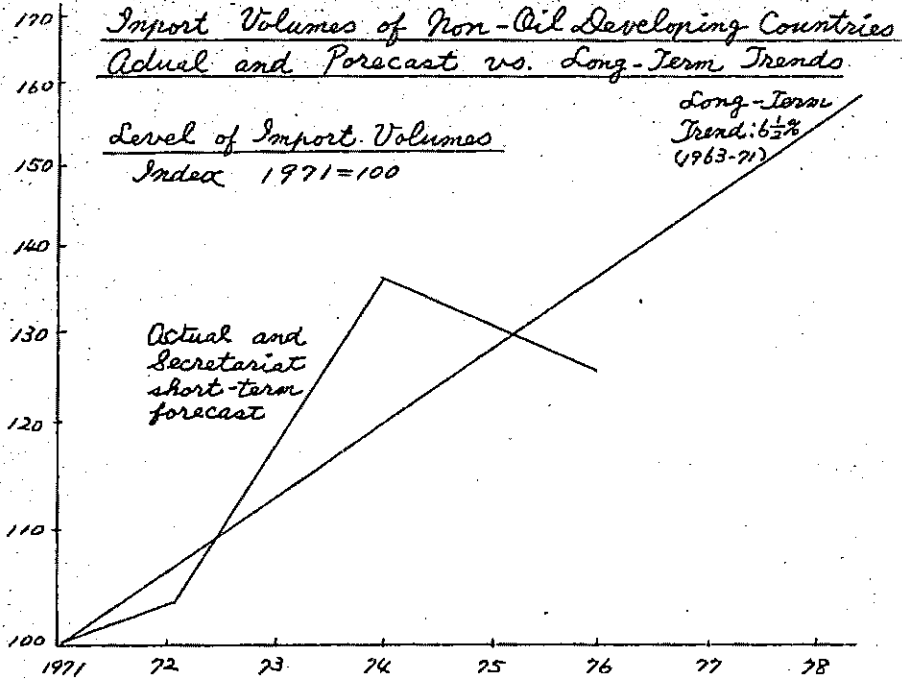 Inport Volumes of Non-Oil Developing Countries
Adual and Porecast vs. Long-Term Trends
Level of Import Volumes
Index 1971=100
Long-Term
Trend: 6½%
(1963-71)
Actual and
Secretariat
short-term
forecast
170
160
150
140
130
120
110
100
1971 72 73 74 75 76 77 78